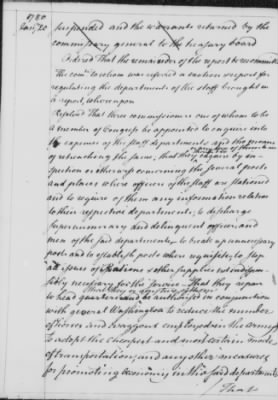 1780
Jany 20
suspended and the warrants returned by the
commissary general to the treasury board
Ordered That the remainder of the report be recommitted
The comee to whom was referred a certain report for
regulating the departments of the staff brought in
a report, whereupon
Resolved That three commissioners one of whom to be
a member of Congress be appointed to enquire into
the expences of the staff departments and the means
of retrenching the same, that they enquire by
spection or otherwise concerning the several posts
and places where officers of the staff are stationed
and to require of them any information relative
to their respective departments, to discharge
supernumerary and delinquent officers and
men of the said departments, to break up unnecessary
posts and to establish posts where requisite, to stop
all issues of rations & other supplies not indispen-
sibly necessary for the service That they repair
to head quarters and be authorised in conjunction
with general Washington to reduce the number
of horses and waggons employed in the army
to adopt the cheapest and most certain mode
of transportation and any other measures
for promoting oeconomy in the said departments
That